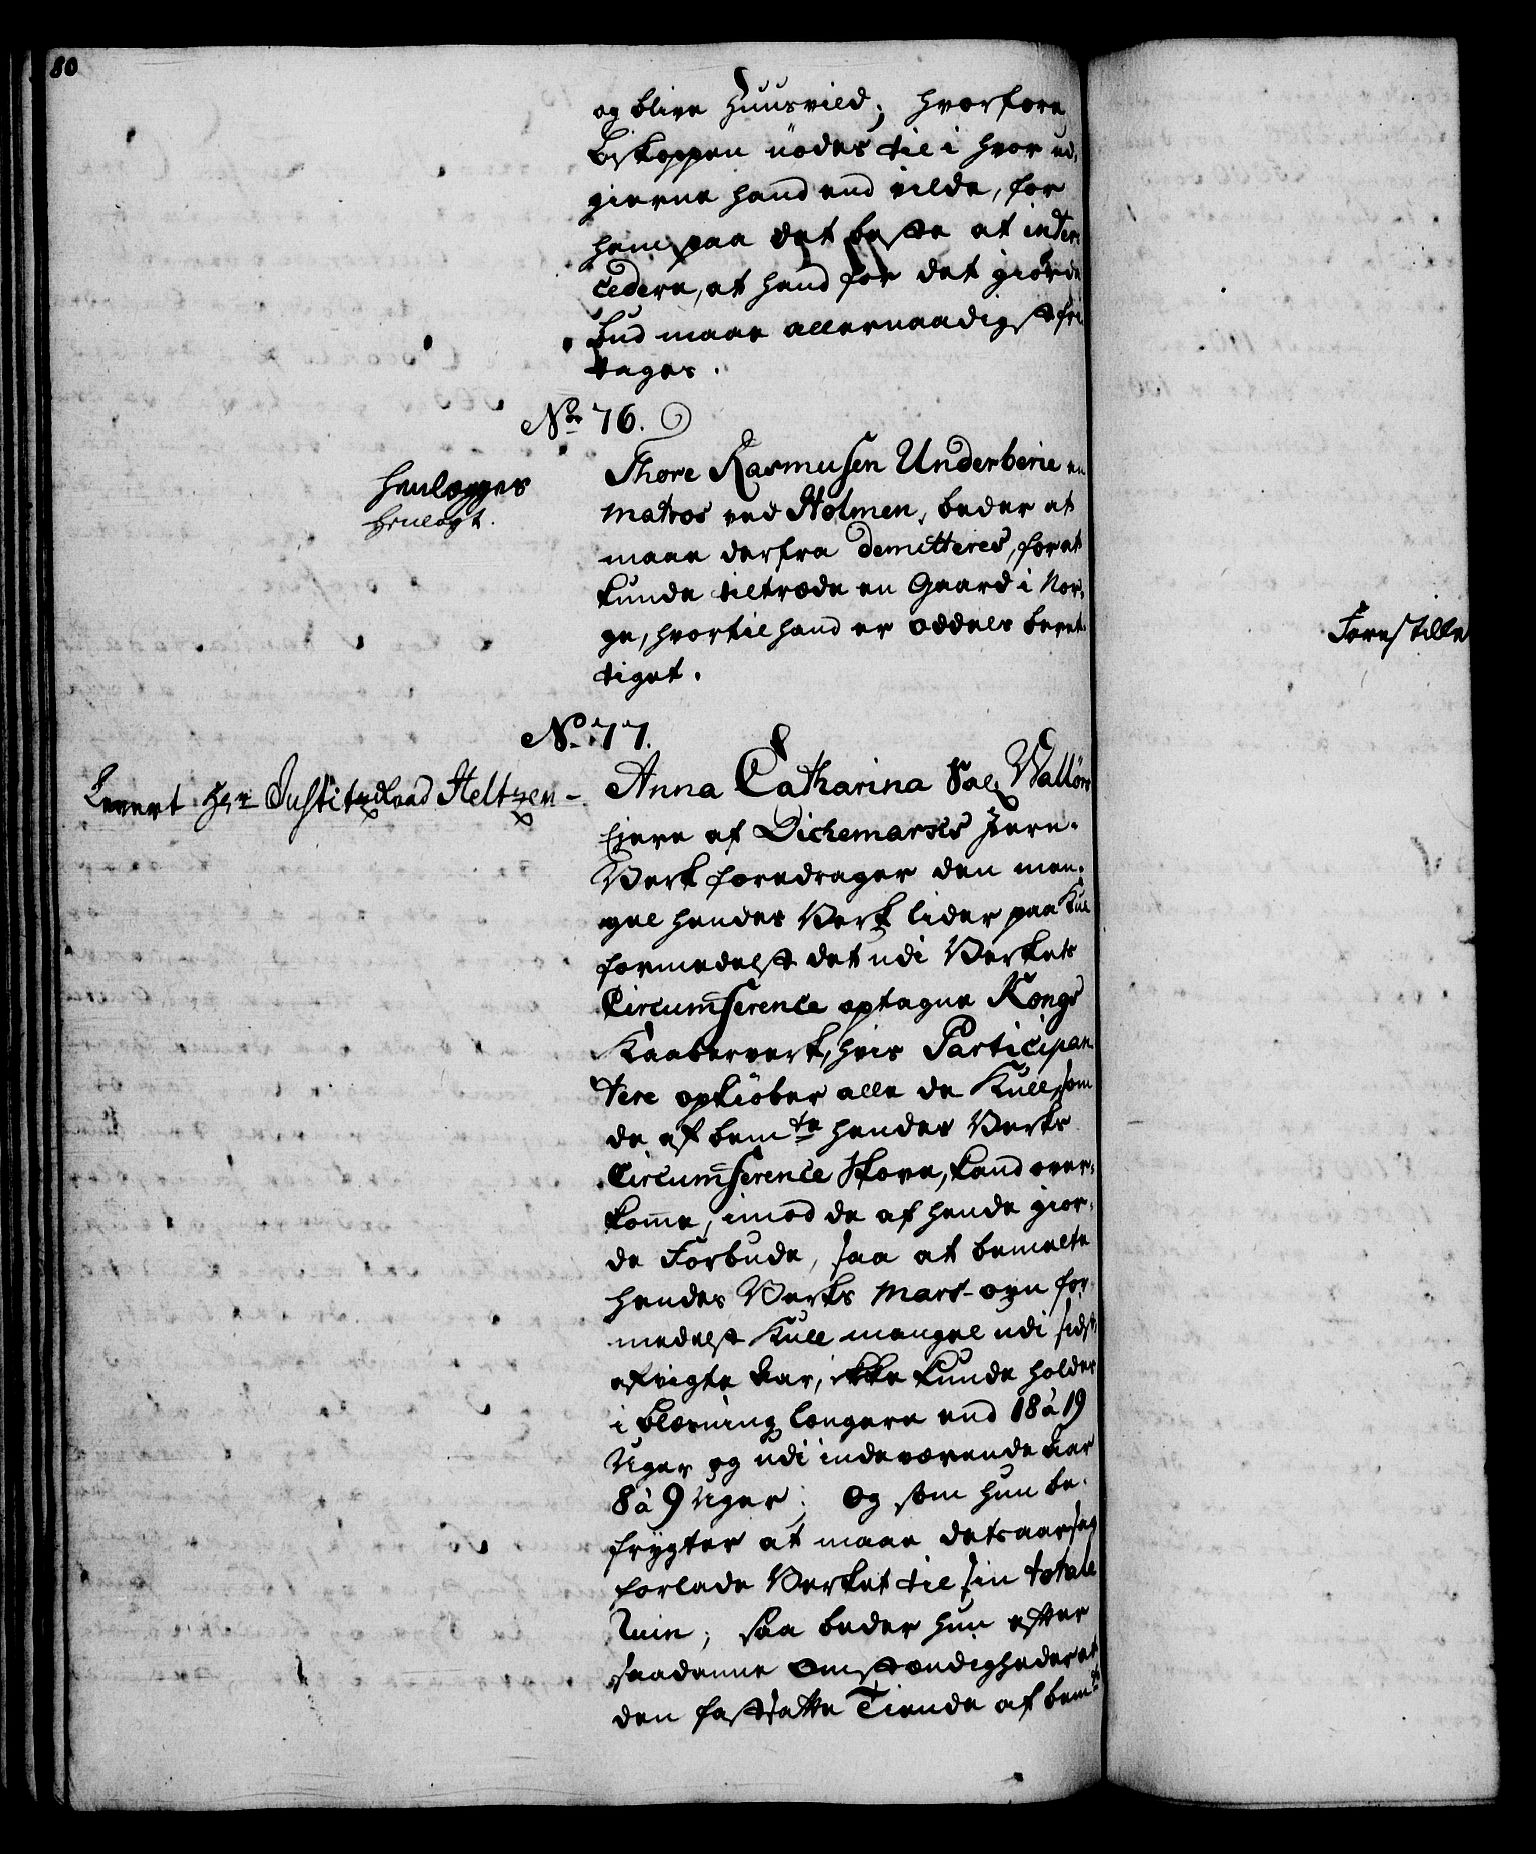 80
og blive Huusvild; hvorfore
Biskoppen nödes til i hvor u-
gierne hand end vilde, for
ham paa det beste at inter-
cedere, at hand for det giorde
bud maae allernaadigst fri-
tages.
No 76.
Henlægges
Henlagt.
Thore Rasmusen Underberie en
Matros ved Holmen, beder at
maae derfra demitteres, for at
kunde tiltræde en Gaard i Nor-
ge, hvortil hand er oddels beret-
tiget.
No 77.
Levert Hr Justitz Raad Heltzen -
Anna Catharina Sal. Wallörs
Ejere af Dichemarks Jern-
Verk foredrager den man-
gel hendes Verk lider paa Kul
formedelst det udi Verkets
Circumference optagne Kongs
Kaaberverk, hvis Participan-
tere opkiöber alle de Kull som
de af bemte hendes Verks
Circumference skove, kand over-
kome, imod de af hende gior-
de Forbude, saa at bemelte
hendes Verks Mars-ovn for-
medelst Kull mangel udi sidst
afvigte Aar, ikke kunde holdes
i blæsning længere end 18 à 19
Uger og udi indeværende Aar
8 à 9 Uger; Og som hun be-
frygter at maae det aarsag
forlade Verket til sin totale
Ruin; saa beder hun efter
saadanne omstændigheder at
den fastsatte Tiende af bemte
Forestilles